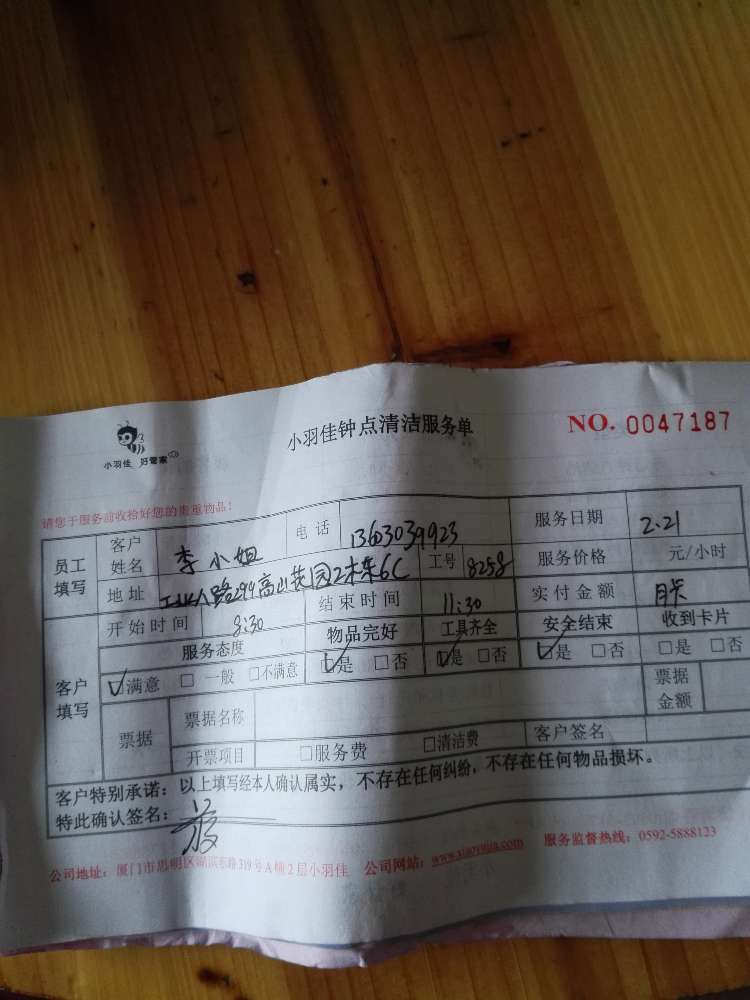 小羽佳 好管家
小羽佳钟点清洁服务单
NO. 0047187
请您于服务前收拾好您的贵重物品！
员工填写 客户姓名 李小姐 电话 13603039923 服务日期 2.21
地址 299高山花园2栋6C 工号 8258 服务价格 元/小时
客户填写 开始时间 8:30 结束时间 11:30 实付金额 月卡
服务态度 物品完好 工具齐全 安全结束 收到卡片
☑满意 □一般 □不满意 ☑是 □否 ☑是 □否 ☑是 □否 □是 □否
票据 票据名称 票据金额
开票项目 □服务费 □清洁费 客户签名
客户特别承诺：以上填写经本人确认属实，不存在任何纠纷，不存在任何物品损坏。
特此确认签名：
公司地址：厦门市思明区湖滨东路319号A幢2层小羽佳 公司网站：www.xiaoyujia.com 服务监督热线：0592-5888123